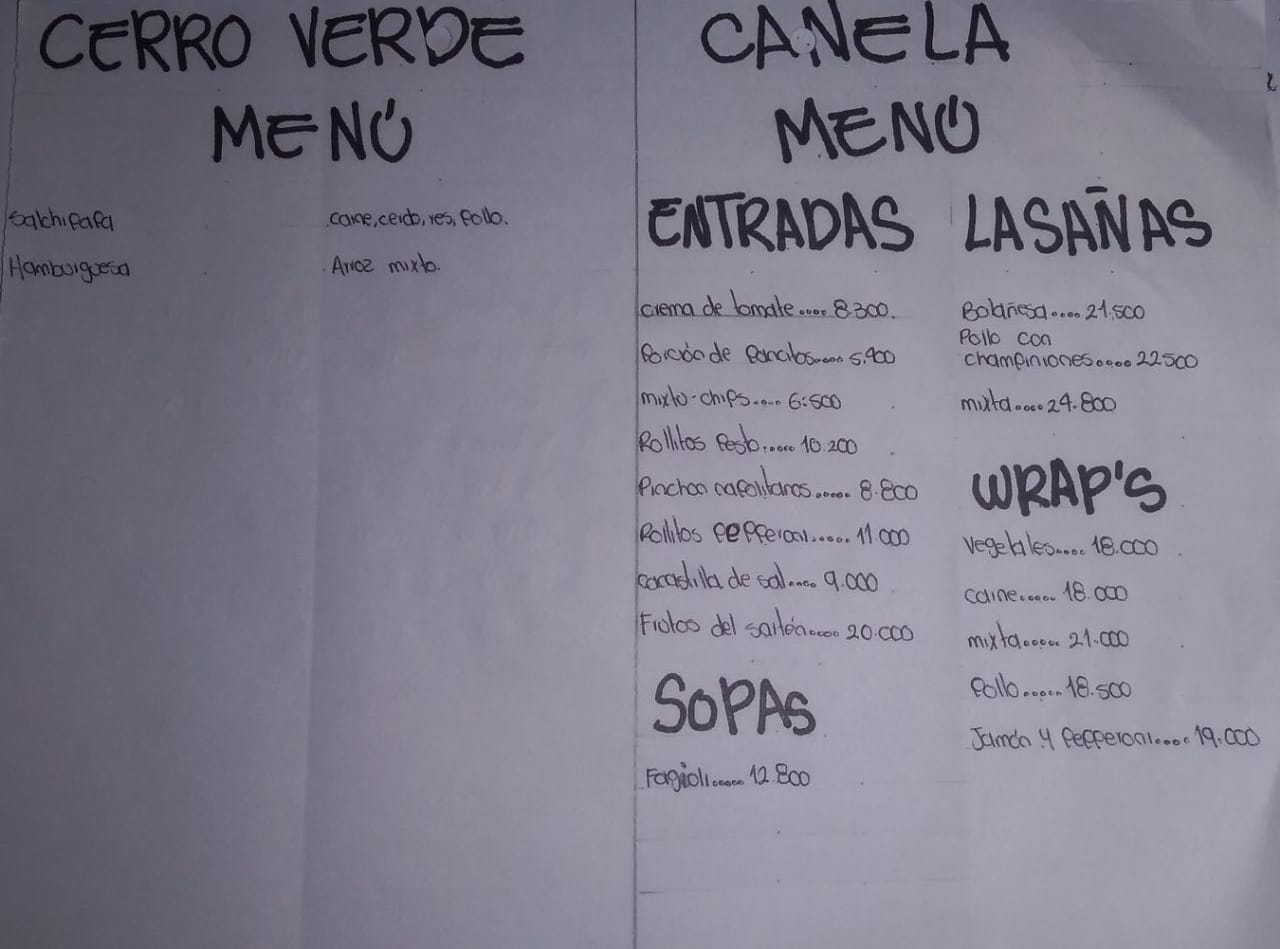 CERRO VERDE
MENÚ
Salchipapa
Hamburguesa
.carne,cerdo,res,pollo.
. Arroz mixto.
CANELA
MENÚ
ENTRADAS
crema de tomate.... 8.300.
Porción de pancitos..... 5.900
mixto-chips.... 6.500
Rollitos pesto...... 10.200
Pinchon napolitanos..... 8.800
Rollitos pepperoni..... 11.000
cocadilla de sal.... 9.000
Frutos del sartén..... 20.000
SOPAS
Fagioli..... 12.800
LASAÑAS
Bolañesa.... 21.500
Pollo con
champiniones.... 22500
mixta.... 24.800
WRAP'S
vegetales.... 18.000
carne..... 18.000
mixta..... 21.000
Pollo..... 18.500
Jamón y pepperoni.... 19.000